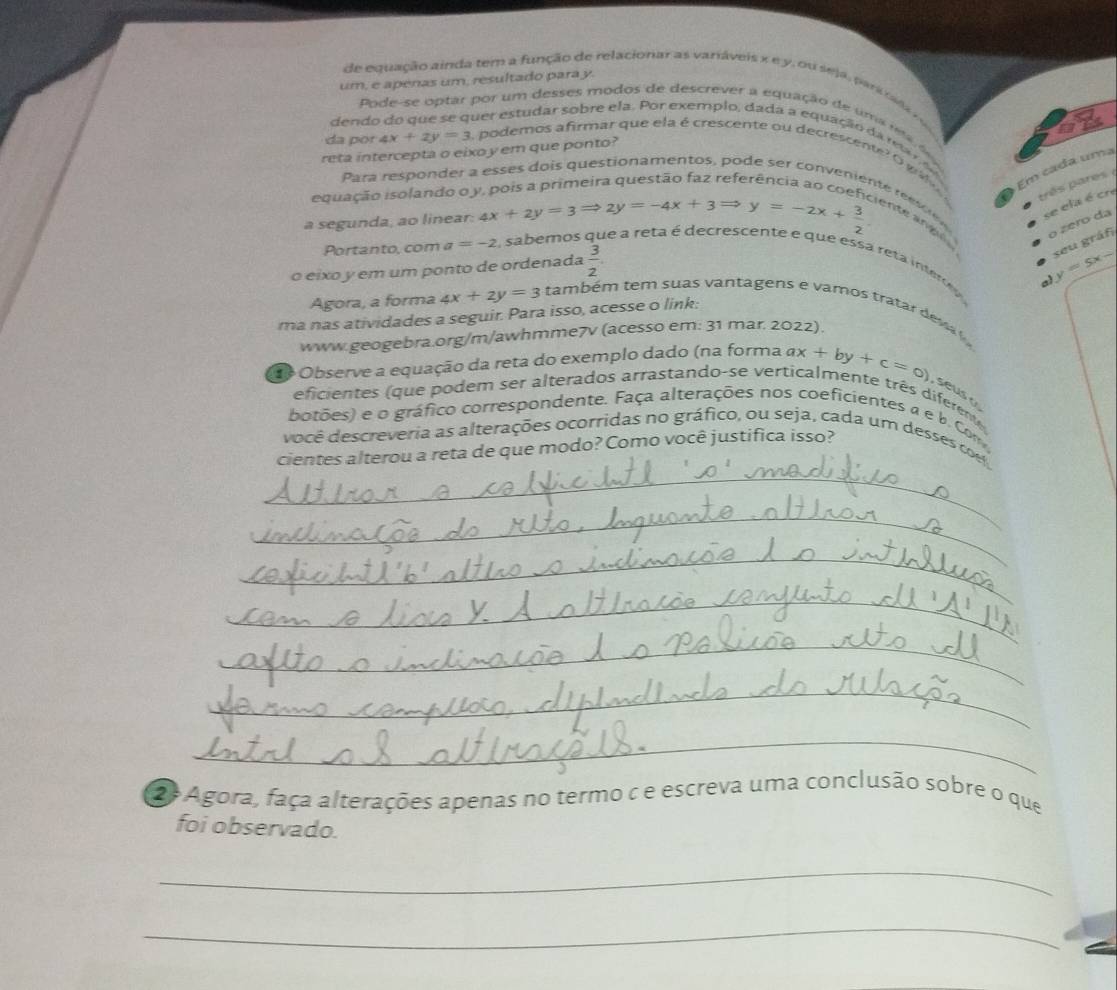 de equação ainda tem a função de relacionar as variáveis x e y, ou seja, para cada x
um, e apenas um, resultado para y.
Pode-se optar por um desses modos de descrever a equação de uma reta,
dendo do que se quer estudar sobre ela. Por exemplo, dada a equação da reta
da por 4x + 2y = 3, podemos afirmar que ela é crescente ou decrescente? O gráfico
reta intercepta o eixo y em que ponto?
Para responder a esses dois questionamentos, pode ser conveniente reescrever
equação isolando o y, pois a primeira questão faz referência ao coeficiente angular
a segunda, ao linear: 4x + 2y = 3 ⇒ 2y = -4x + 3 ⇒ y = -2x + 3/2.
Portanto, com a = -2, sabemos que a reta é decrescente e que essa reta intercepta
o eixo y em um ponto de ordenada 3/2.
Agora, a forma 4x + 2y = 3 também tem suas vantagens e vamos tratar dessa for
ma nas atividades a seguir. Para isso, acesse o link:
www.geogebra.org/m/awhmme7v (acesso em: 31 mar. 2022).
1 Observe a equação da reta do exemplo dado (na forma ax + by + c = 0), seus co
eficientes (que podem ser alterados arrastando-se verticalmente três diferentes
botões) e o gráfico correspondente. Faça alterações nos coeficientes a e b. Como
você descreveria as alterações ocorridas no gráfico, ou seja, cada um desses coefi
cientes alterou a reta de que modo? Como você justifica isso?
Alterar o coeficiente 'a' modifica a
inclinação da reta, enquanto alterar o
coeficiente 'b' altera a inclinação e a interseção
com o eixo y. A alteração conjunta de 'A' e 'B'
afeta a inclinação e a posição reta de
forma complexa, dependendo da relação
entre as alterações.
2 Agora, faça alterações apenas no termo c e escreva uma conclusão sobre o que
foi observado.
Em cada uma
três pares
se ela é cre
o zero da
seu gráfi
a) y = 5x -